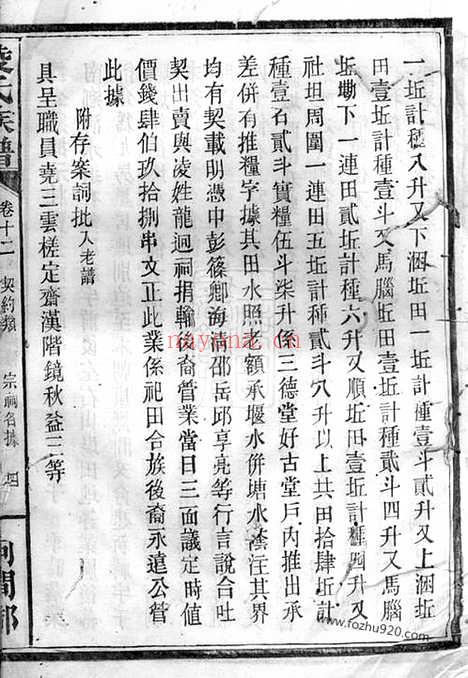 一坵計種八升又下涵坵田一坵計種壹斗貳升又上涵坵
田壹坵計種壹斗又馬腦坵田壹坵計種貳斗四升又馬腦
坵墈下一連田貳坵計種六升又順坵田壹坵計種四升又
社坦周圍一連田五坵計種貳斗穴升以上共田拾肆坵計
種壹石貳斗實糧伍斗柒升係三德堂好古堂戶內推出承
差併有推糧字據其田水照老額承堰水併塘水蔭注其界
均有契載明憑中彭篠卿海清邵岳邱享亮等行言說合吐
契出賣與凌姓龍迴祠捐輸後裔管業當日三面議定時值
價錢肆伯玖拾捌串文正此業係祀田合族後裔永遠公管
此據
附存案詞批入老譜
具呈職員堯三雲槎定齋漢階鏡秋益三等
凌氏族譜
卷十二 契約類 宗祠各據 四
河間郡
nayana.cn
www.fozhu920.com